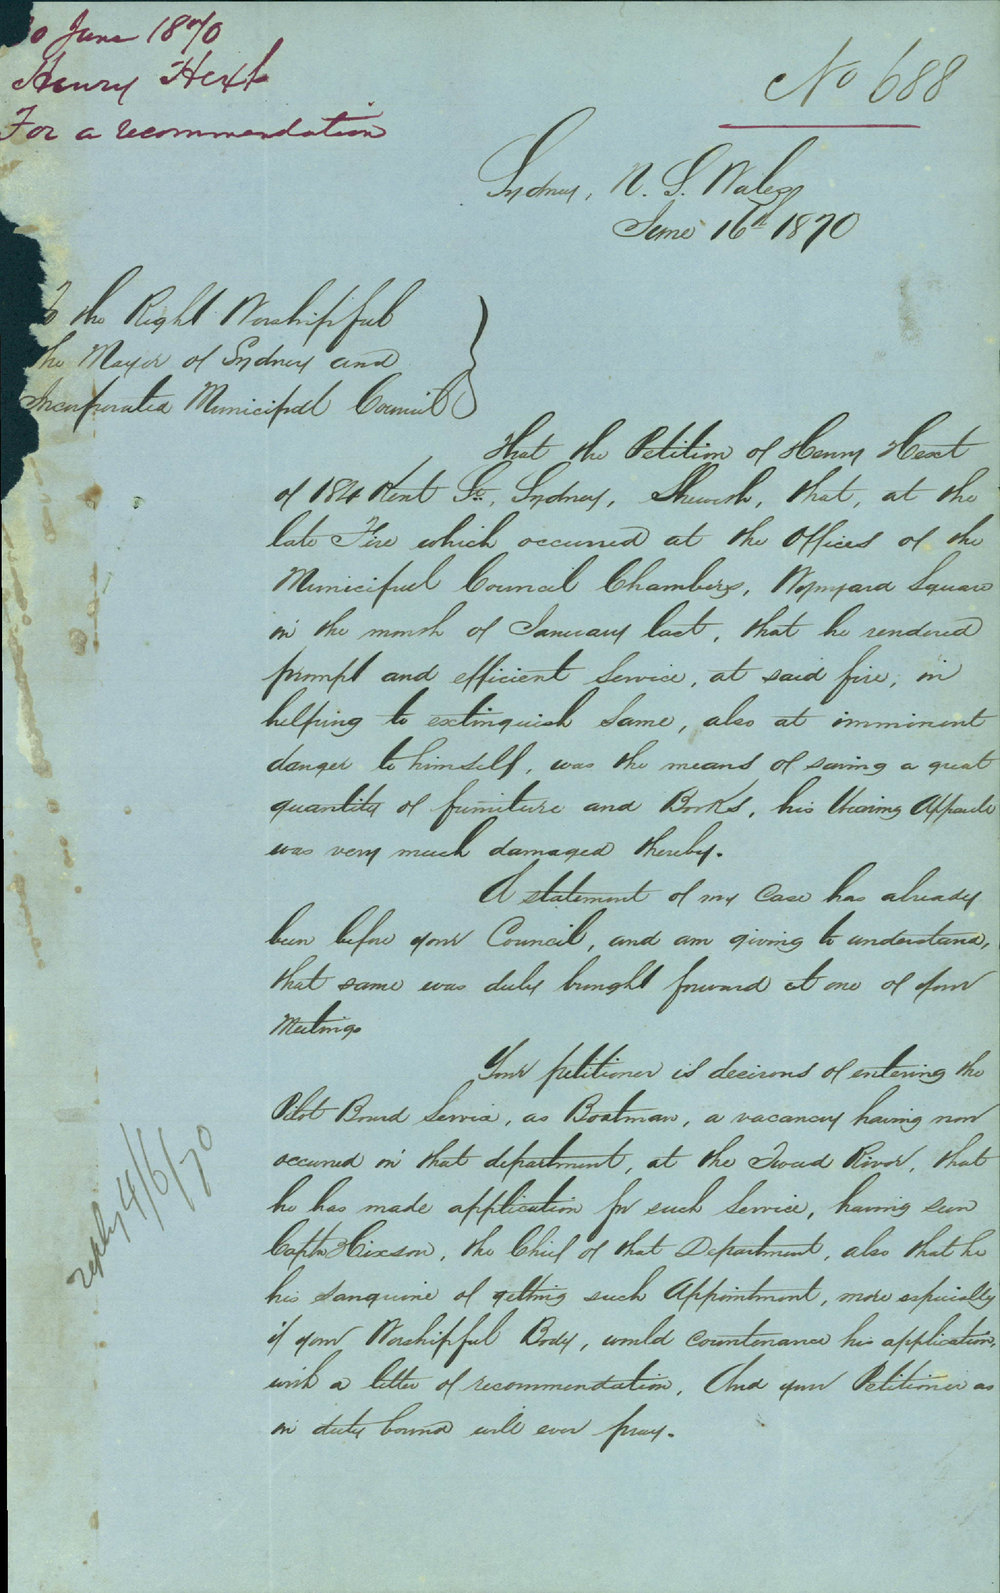 0 June 1870
Henry Hext
For a recommendation
No 688
Sydney, N. S. Wales
June 16th 1870
To the Right Worshipful
the Mayor of Sydney and
Incorporated Municipal Council
That the Petition of Henry Hext
of 184 Kent St, Sydney, Sheweth, that, at the
late Fire which occurred at the Offices of the
Municipal Council Chambers, Wynyard Square
in the month of January last, that he rendered
prompt and efficient Service, at said fire, in
helping to extinguish same, also at imminent
danger to himself, was the means of saving a great
quantity of furniture and Books, his Wearing Apparel
was very much damaged thereby.
A statement of my Case has already
been before your Council, and am giving to understand,
that same was duly brought forward at one of your
Meetings
Your petitioner is desirous of entering the
Pilot Board Service, as Boatman, a vacancy having now
occurred in that department, at the Tweed River, that
he has made application for such Service, having seen
Captn Hixson, the Chief of that Department, also that he
his sanguine of getting such Appointment, more especially
if your Worshipful Body, would countenance his application,
with a letter of recommendation, And your Petitioner as
in duty bound will ever pray.
reply 4/6/70